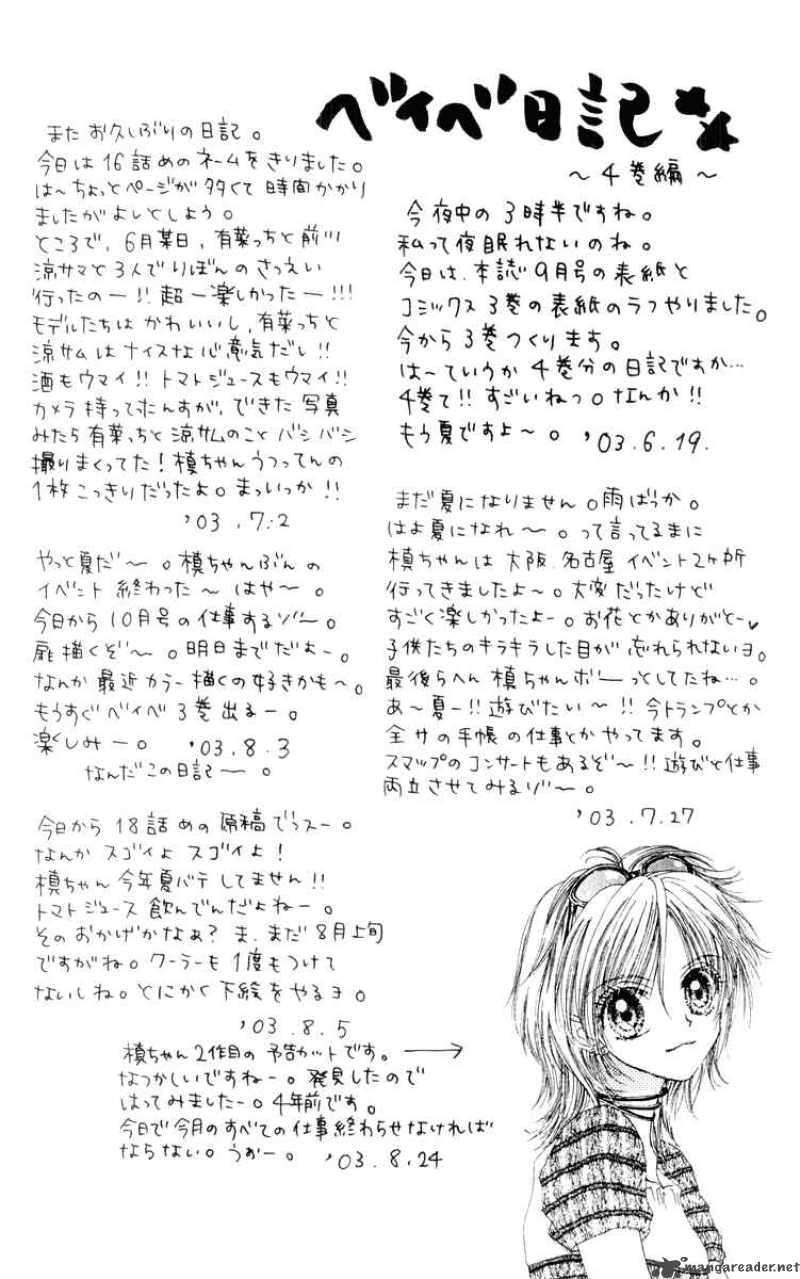 ベイベ日記
～4巻編～
今夜中の3時半ですね。
私って夜眠れないのね。
今日は、本誌9月号の表紙と
コミックス3巻の表紙のラフやりました。
今から3巻つくります。
は～ていうか4巻分の日記ですか…
4巻て!!すごいねっ。なんか!!
もう夏ですよ～。'03.6.19.
まだ夏になりません。雨ばっか。
はよ夏になれ～。って言ってるまに
槙ちゃんは大阪、名古屋イベント2ヶ所
行ってきましたよ～。大変だったけど
すごく楽しかったよー。お花とかありがとー♥
子供たちのキラキラした目が忘れられないヨ。
最後らへん槙ちゃんボーっとしてたね…。
あ～夏ー!!遊びたい～!!今トランプとか
全サの手帳の仕事とかやってます。
スマップのコンサートもあるぞ～!!遊びと仕事
両立させてみるゾ～。
'03.7.27
またお久しぶりの日記。
今日は16話めのネームをきりました。
は～ちょっとページが多くて時間かかり
ましたがよいとしよう。
ところで、6月某日、有菜っちと前川
涼サマと3人でりぼんのさつえい
行ったのー!!超ー楽しかったー!!!
モデルたちはかわいいし、有菜っちと
涼サムはナイスな心意気だし!!
酒もウマイ!!トマトジュースもウマイ!!
カメラ持ってたんすが、できた写真
みたら有菜っちと涼サムのことバシバシ
撮りまくってた!槙ちゃんうつってんの
1枚こっきりだったよ。まっいっか!!
'03.7.2
やっと夏だ～。槙ちゃんぶんの
イベント終わった～はや～。
今日から10月号の仕事するゾ～。
扉描くぞ～。明日までだよー。
なんか最近カラー描くの好きかも～。
もうすぐベイベ3巻出るー。
楽しみー。'03.8.3
なんだこの日記ー。
今日から18話めの原稿でっスー。
なんかスゴイよスゴイよ!
槙ちゃん今年夏バテしてません!!
トマトジュース飲んでんだよねー。
そのおかげかなぁ?ま、まだ8月上旬
ですがね。クーラーも1度もつけて
ないしね。とにかく下絵をやるヨ。
'03.8.5
槙ちゃん2作目の予告カットです。→
なつかしいですねー。発見したので
はってみましたー。4年前です。
今日で今月のすべての仕事終わらせなければ
ならない。うぉー。'03.8.24
mangareader.net